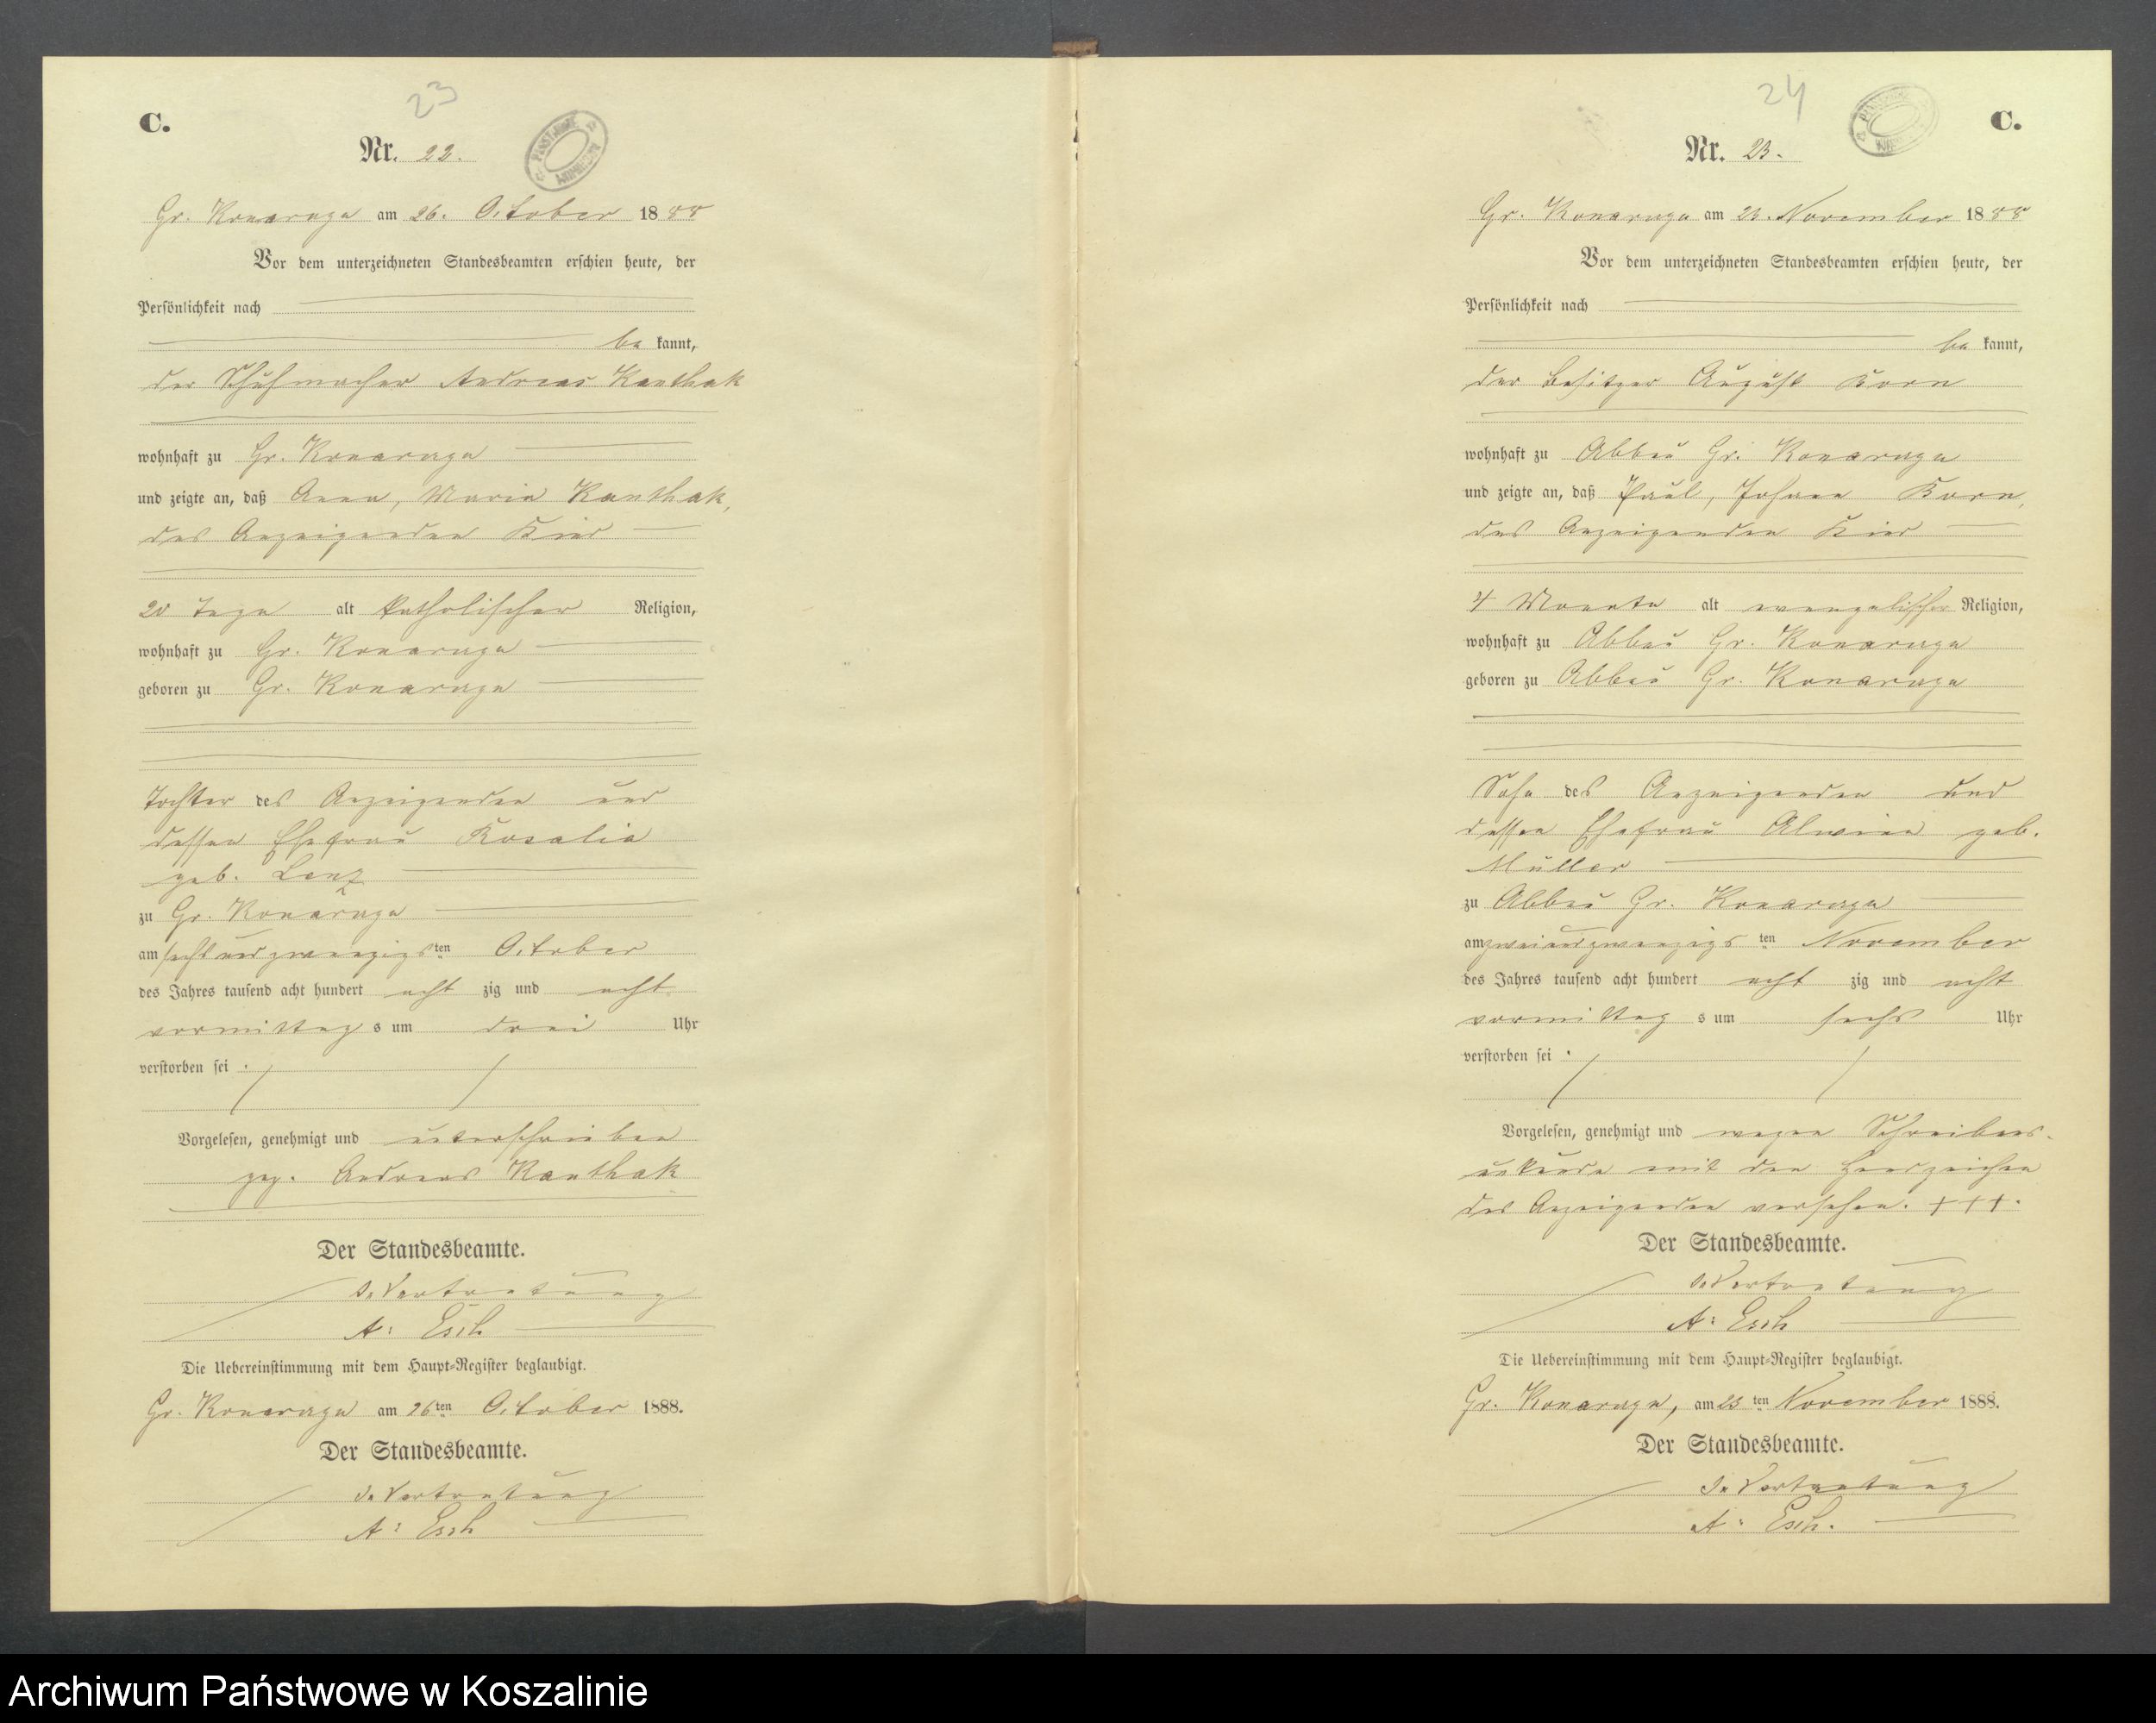 23
C.
Nr. 22.
Gr. Konarzyn am 26. October 1888
Vor dem unterzeichneten Standesbeamten erschien heute, der
Persönlichkeit nach
be kannt,
der Schuhmacher Andreas Kanthak
wohnhaft zu Gr. Konarzyn
und zeigte an, daß Anna, Maria Kanthak,
des Anzeigenden Kind
20 Tage alt katholischer Religion,
wohnhaft zu Gr. Konarzyn
geboren zu Gr. Konarzyn
Tochter des Anzeigenden und
dessen Ehefrau Rosalia
geb. Lenz
zu Gr. Konarzyn
am sechsundzwanzigsten October
des Jahres tausend acht hundert acht zig und acht
vormittags um drei Uhr
verstorben sei.
Vorgelesen, genehmigt und unterschrieben
gez. Andreas Kanthak
Der Standesbeamte.
In Vertretung
A. Esch
Die Uebereinstimmung mit dem Haupt-Register beglaubigt.
Gr. Konarzyn am 26ten October 1888.
Der Standesbeamte.
In Vertretung
A. Esch
24
C.
Nr. 23.
Gr. Konarzyn am 23. November 1888
Vor dem unterzeichneten Standesbeamten erschien heute, der
Persönlichkeit nach
be kannt,
der Besitzer August Korn
wohnhaft zu Abbau Gr. Konarzyn
und zeigte an, daß Paul, Johann Korn,
des Anzeigenden Kind
4 Monate alt evangelischer Religion,
wohnhaft zu Abbau Gr. Konarzyn
geboren zu Abbau Gr. Konarzyn
Sohn des Anzeigenden und
dessen Ehefrau Alwine geb.
Müller
zu Abbau Gr. Konarzyn
am zweiundzwanzigsten November
des Jahres tausend acht hundert acht zig und acht
vormittags um sechs Uhr
verstorben sei.
Vorgelesen, genehmigt und wegen Schreibens-
unkunde mit den Handzeichen
des Anzeigenden versehen. +++.
Der Standesbeamte.
In Vertretung
A. Esch
Die Uebereinstimmung mit dem Haupt-Register beglaubigt.
Gr. Konarzyn, am 23ten November 1888.
Der Standesbeamte.
In Vertretung
A. Esch.
Archiwum Państwowe w Koszalinie